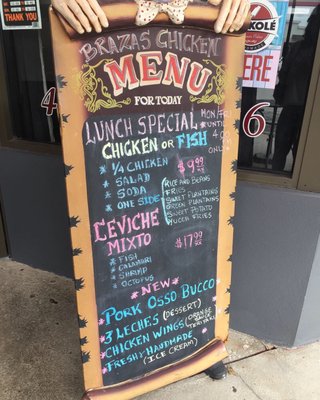 THANK YOU
BRAZAS CHICKEN
MENU
FOR TODAY
LUNCH SPECIAL
MON/FRI
UNTIL
4:00
ONLY!!
CHICKEN OR FISH
* 1/4 CHICKEN
* SALAD
* SODA
* ONE SIDE
$9.99
RICE AND BEANS
FRIES
SWEET PLANTAINS
GREEN PLANTAINS
SWEET POTATO
YUCCA FRIES
LEVICHE
MIXTO
$17.99
* FISH
* CALAMARI
* SHRIMP
* OCTOPUS
* NEW *
* PORK OSSO BUCCO
* 3 LECHES (DESSERT)
* CHICKEN WINGS (ORANGE SAUCE TERIYAKI)
* FRESH & HANDMADE
(ICE CREAM)
4
6
HERE